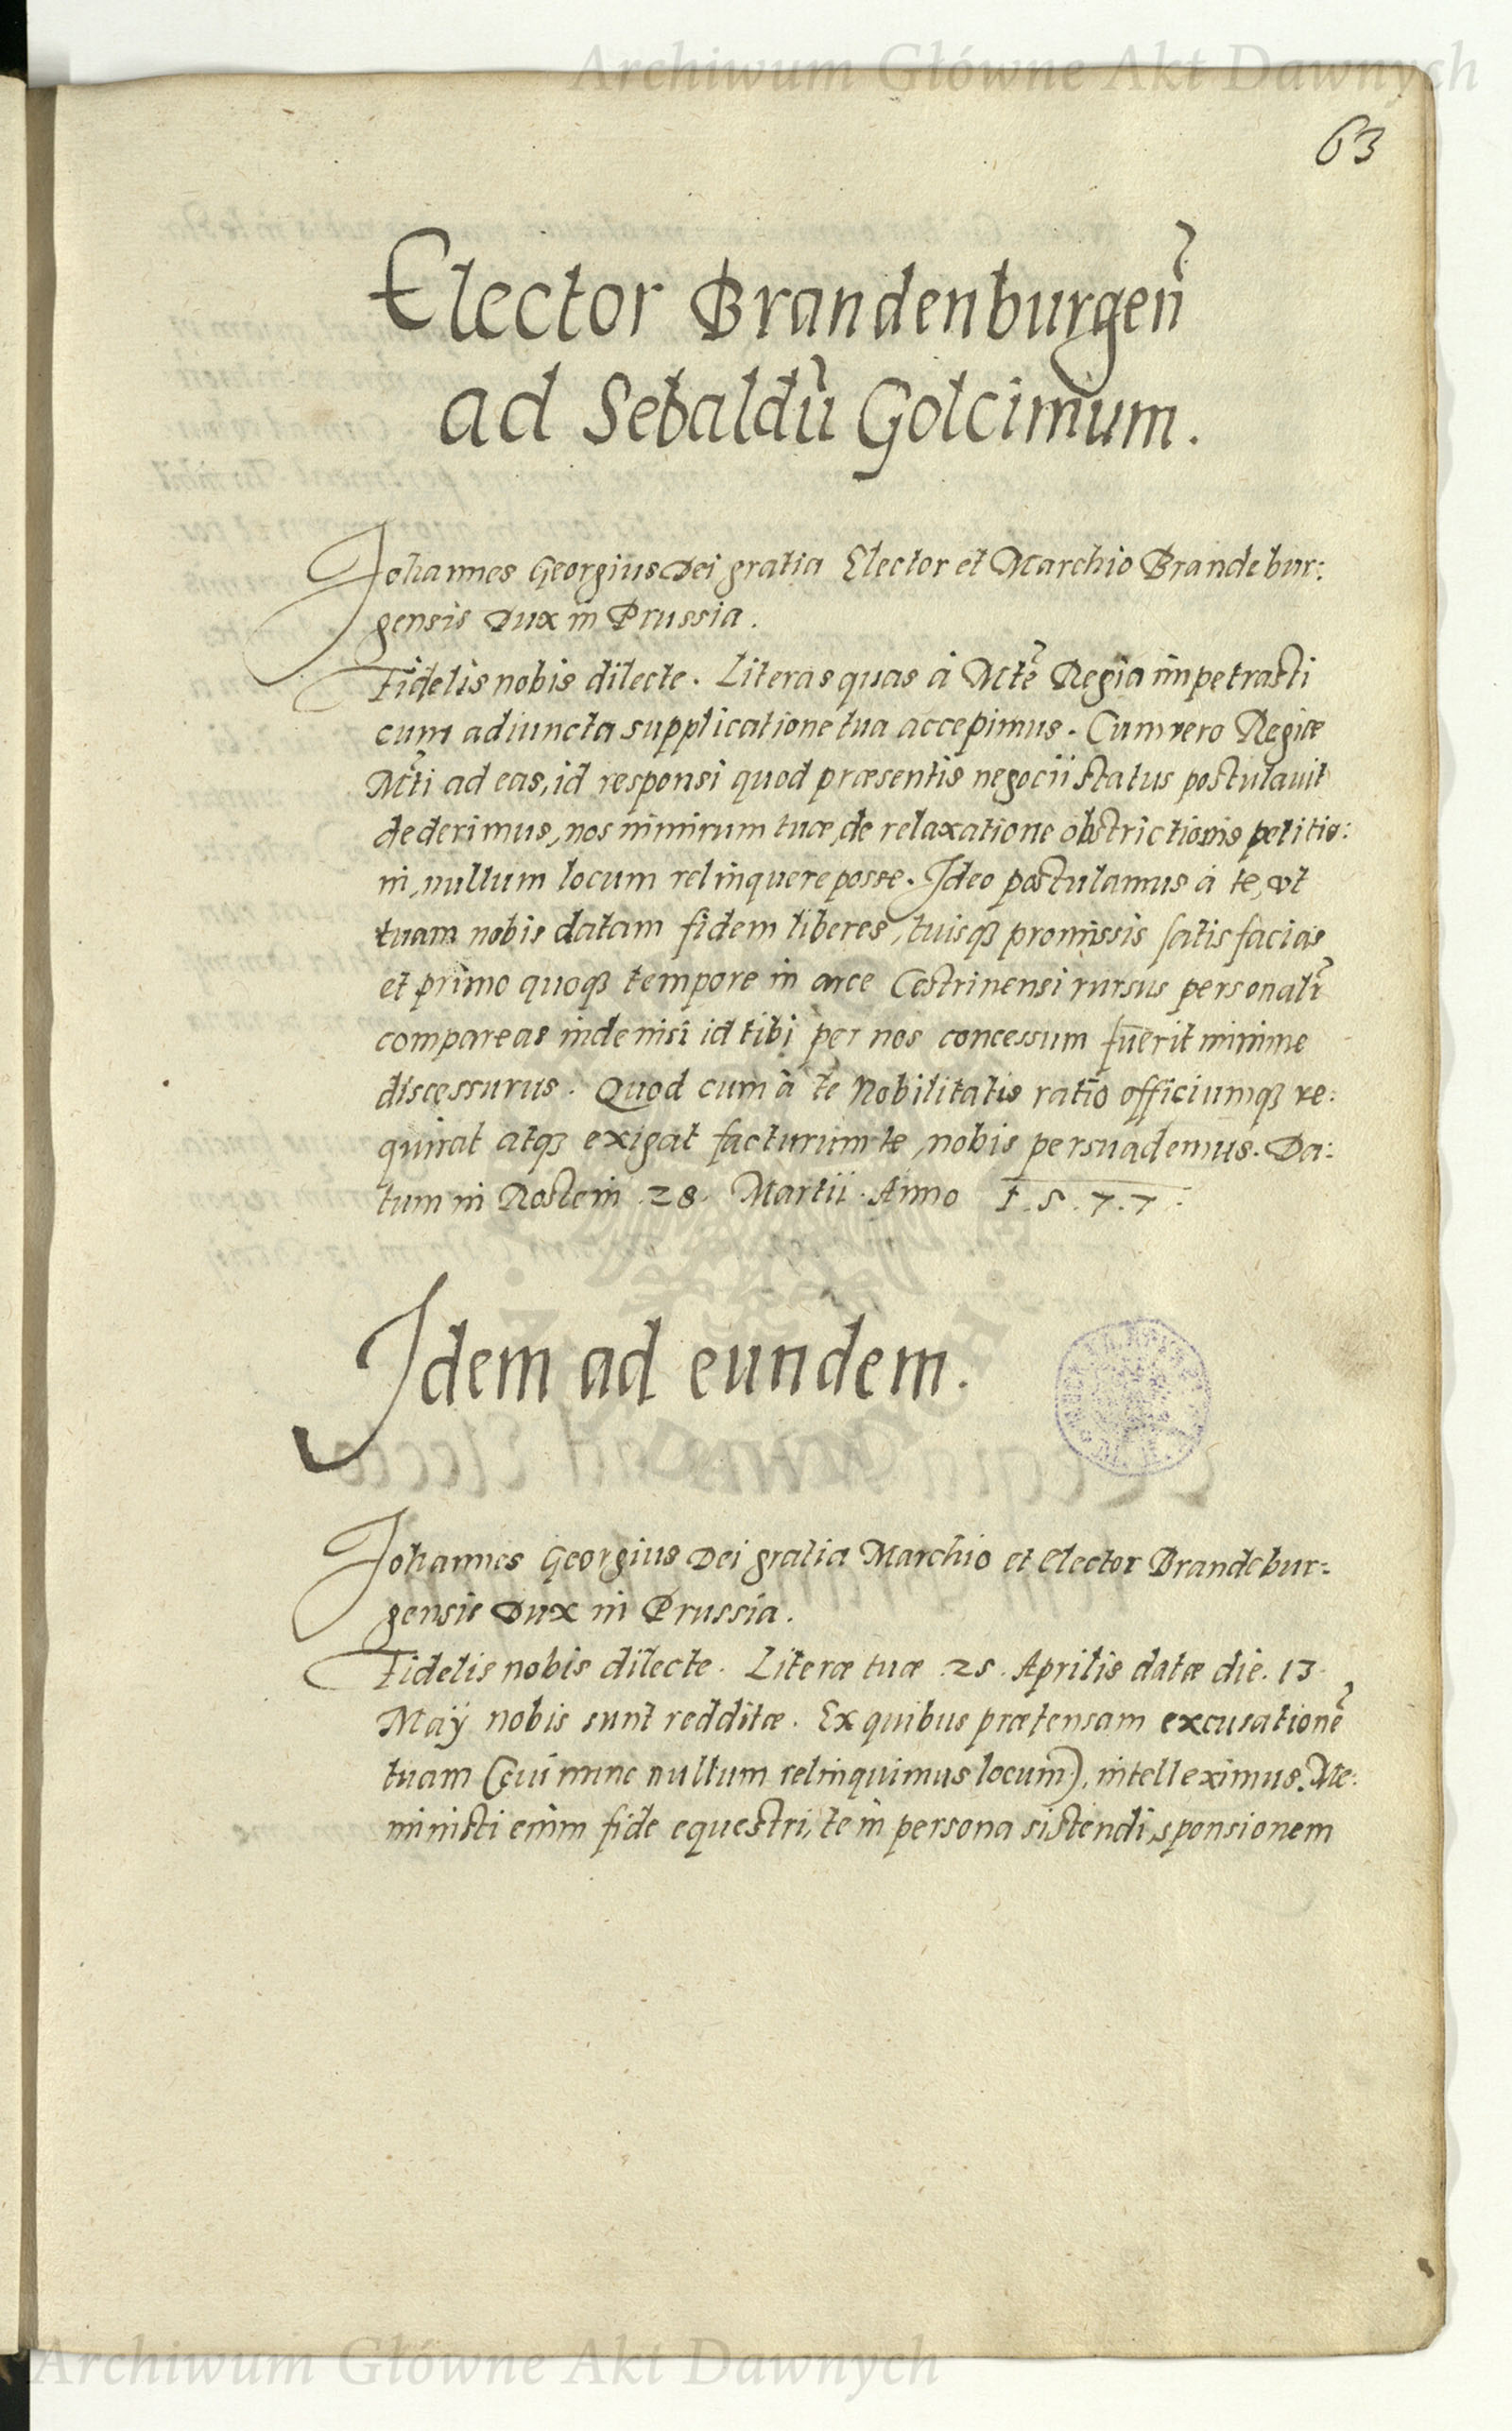 Archiwum Główne Akt Dawnych
63
Elector Brandenburgen̄
ad Sebaldū Golcimum.
Johannes Georgius Dei gratia Elector et Marchio Brandebur:
gensis Dux in Prussia.
Fidelis nobis dilecte. Literas quas à Mtē Regia impetrasti
cum adiuncta supplicatione tua accepimus. Cum vero Regiæ
Mti ad eas, id responsi quod præsentis negocii status postulavit
dederimus, nos nimirum tuæ, de relaxatione obstrictionis petitio:
ni, nullum locum relinquere posse. Ideo postulamus à te, vt
tuam nobis datam fidem liberes, tuisqȝ promissis satisfacias
et primo quoqȝ tempore in arce Cestrinensi rursus personalr̄
compareas inde nisi id tibi per nos concessum fuerit minime
discessurus. Quod cum à te Nobilitatis ratio officiumqȝ re:
quirat atqȝ exigat facturum te, nobis persuademus. Da:
tum in Rostein .28. Martii. Anno 1.5.7.7.
Idem ad eundem.
Johannes Georgius Dei gratia Marchio et Elector Brandebur=
gensis Dux in Prussia.
Fidelis nobis dilecte. Literæ tuæ .25. Aprilis datæ die. 13.
Maÿ nobis sunt redditæ. Ex quibus prætensam excusationē
tuam (cui nunc nullum relinquimus locum), intelleximus. Me:
ministi enim fide equestri, te in persona sistendi, sponsionem
Archiwum Główne Akt Dawnych